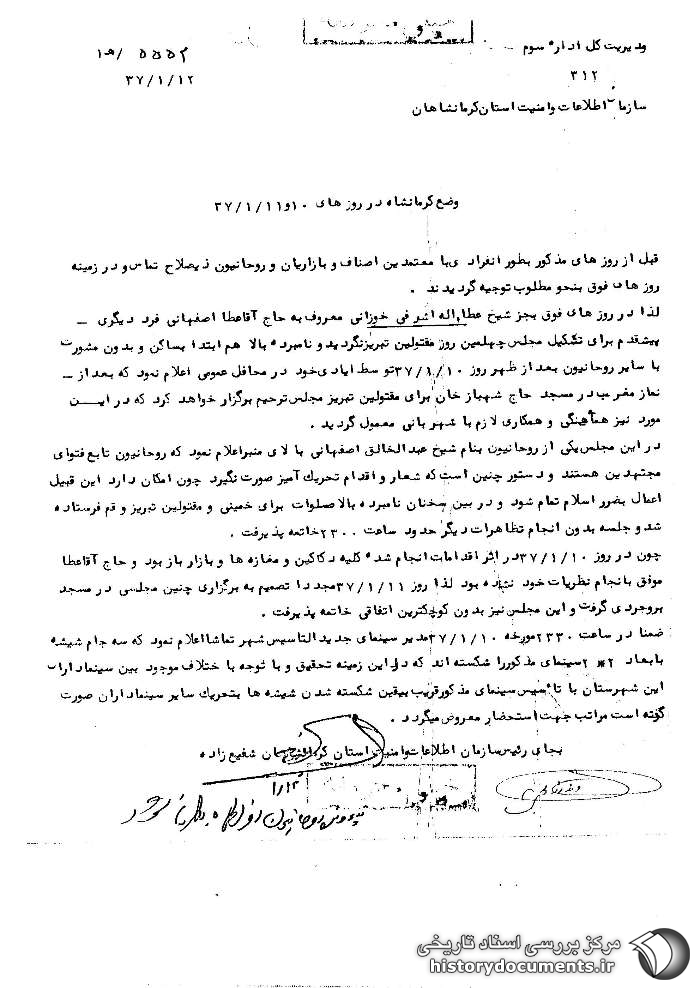 مدیریت کل اداره سوم
۳۱۲
سازمان اطلاعات و امنیت استان کرمانشاهان
۵۵۵۲ /ه‍ ۱
۳۷/۱/۱۲
وضع کرمانشاه در روز های ۱۰ و ۳۷/۱/۱۱
قبل از روز های مذکور بطور انفراد ی با معتمدین اصناف و بازاریان و روحانیون ذیصلاح تماس و در زمینه
روز های فوق بنحو مطلوب توجیه گردیدند .
لذا در روز های فوق بجز شیخ عطاءاله اشرفی خوزانی معروف به حاج آقا عطا اصفهانی فرد دیگری ــ
پیشقدم برای تشکیل مجلس چهلمین روز مقتولین تبریز نگردید و نامبرده بالا هم ابتدا بساکن و بدون مشورت
با سایر روحانیون بعد از ظهر روز ۳۷/۱/۱۰ توسط ایادی خود در محافل عمومی اعلام نمود که بعد از ــ
نماز مغرب در مسجد حاج شهباز خان برای مقتولین تبریز مجلس ترحیم برگزار خواهد کرد که در ایــن
مورد نیز هماهنگی و همکاری لازم با شهربانی معمول گردید .
در این مجلس یکی از روحانیون بنام شیخ عبدالخالق اصفهانی با لای منبر اعلام نمود که روحانیون تابع فتوای
مجتهدین هستند و دستور چنین است که شعار و اقدام تحریک آمیز صورت نگیرد چون امکان دارد این قبیل
اعمال بضرر اسلام تمام شود و در بین سخنان نامبرده بالا صلوات برای خمینی و مقتولین تبریز و قم فرستاده
شد و جلسه بدون انجام تظاهرات دیگر حدود ساعت ۲۳۰۰ خاتمه پذیرفت .
چون در روز ۳۷/۱/۱۰ در اثر اقدامات انجام شده کلیه دکاکین و مغازه ها و بازار باز بود و حاج آقا عطا
موفق بانجام نظریات خود نشده بود لذا روز ۳۷/۱/۱۱ مجددا تصمیم به برگزاری چنین مجلسی در مسجد
بروجردی گرفت و این مجلس نیز بدون کوچکترین اتفاقی خاتمه پذیرفت .
ضمنا در ساعت ۲۳۳۰ مورخه ۳۷/۱/۱۰ مدیر سینمای جدید التاسیس شهر تماشا اعلام نمود که سه جام شیشه
بابعاد ۲*۲ سینمای مذکور را شکسته اند که در این زمینه تحقیق و با توجه با ختلاف موجود بین سینما داران
این شهرستان با تأسیس سینمای مذکور قریب بیقین شکسته شدن شیشه ها بتحریک سایر سینما داران صورت
گرفته است مراتب جهت استحضار معروض میگردد .
بجای رئیس سازمان اطلاعات و امنیت استان شفیع زاده
۱/۱۳
مرکز بررسی اسناد تاریخی
historydocuments.ir